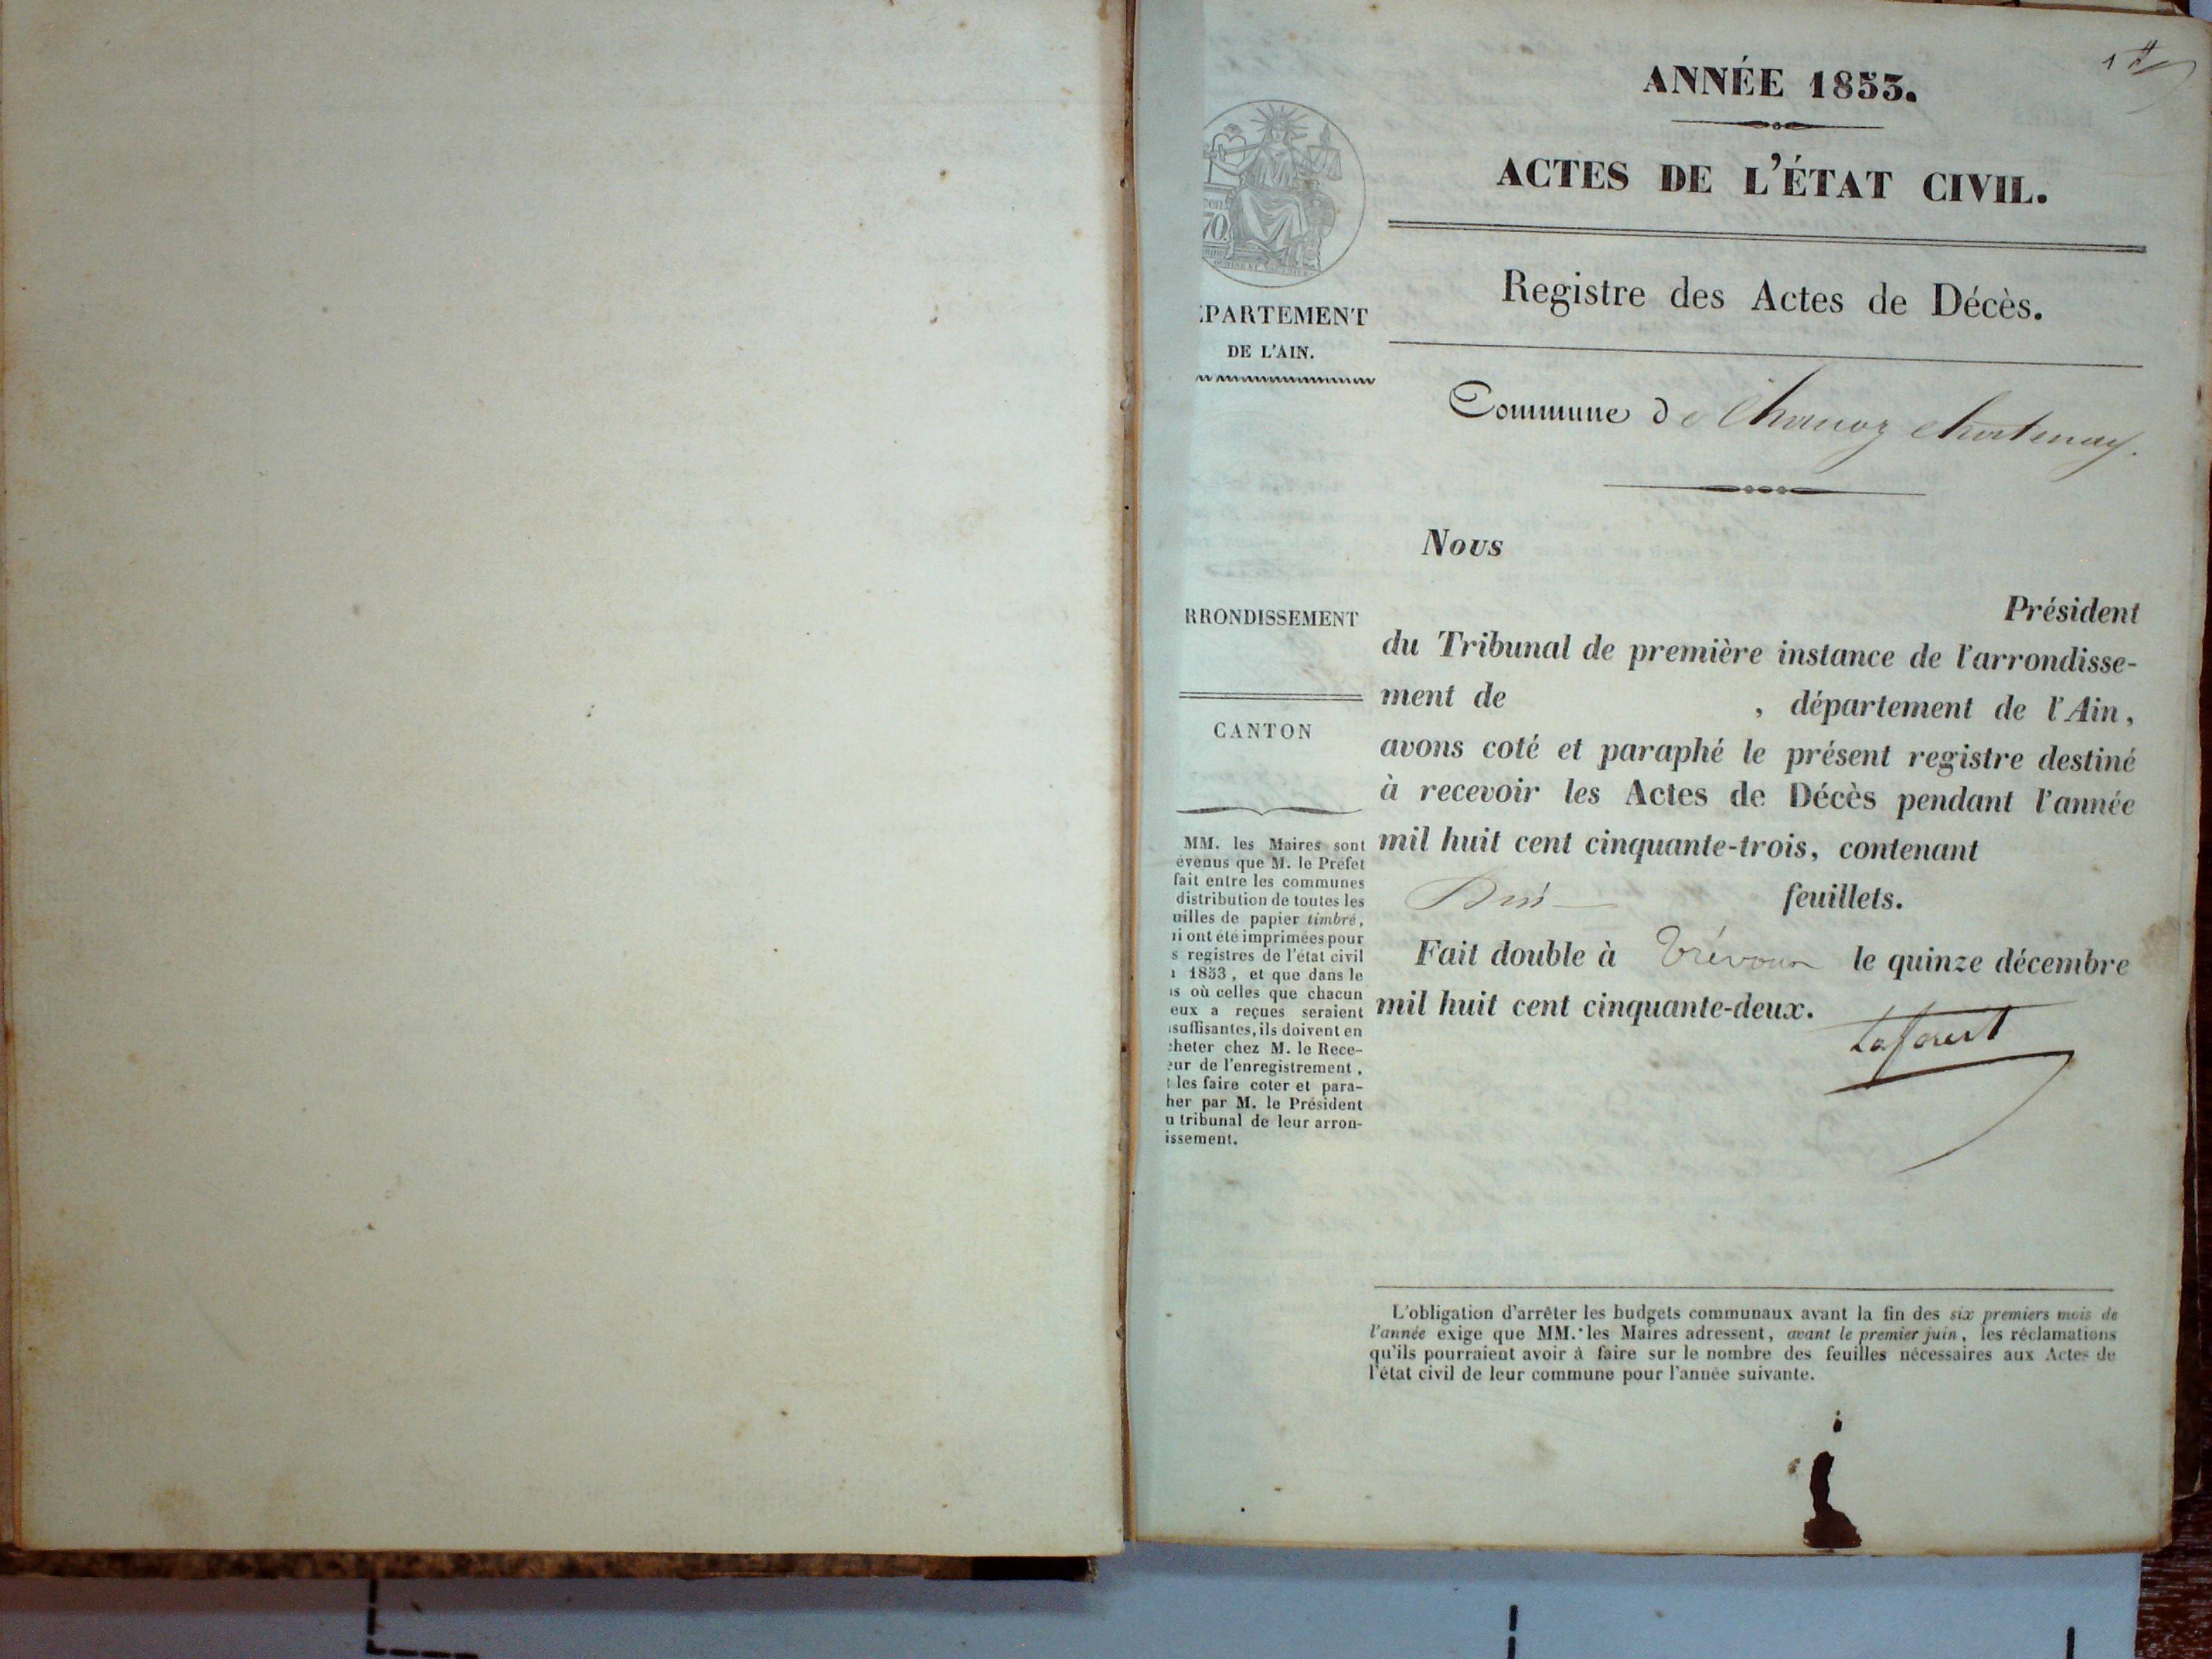 ANNÉE 1853.
ACTES DE L'ÉTAT CIVIL.
Registre des Actes de Décès.
70
PARTEMENT
DE L'AIN.
Commune de Chanoz chatenay.
Nous
Président
du Tribunal de première instance de l'arrondisse-
ment de , département de l'Ain,
avons coté et paraphé le présent registre destiné
à recevoir les Actes de Décès pendant l'année
mil huit cent cinquante-trois, contenant
feuillets.
Fait double à Trévoux le quinze décembre
mil huit cent cinquante-deux.
RRONDISSEMENT
CANTON
MM. les Maires sont
évenus que M. le Préfet
fait entre les communes
distribution de toutes les
uilles de papier timbré,
ui ont été imprimées pour
s registres de l'état civil
1853, et que dans le
as où celles que chacun
eux a reçues seraient
nsuffisantes, ils doivent en
cheter chez M. le Rece-
eur de l'enregistrement,
t les faire coter et para-
her par M. le Président
u tribunal de leur arron-
issement.
L'obligation d'arrêter les budgets communaux avant la fin des six premiers mois de
l'année exige que MM. les Maires adressent, avant le premier juin, les réclamations
qu'ils pourraient avoir à faire sur le nombre des feuilles nécessaires aux Actes de
l'état civil de leur commune pour l'année suivante.